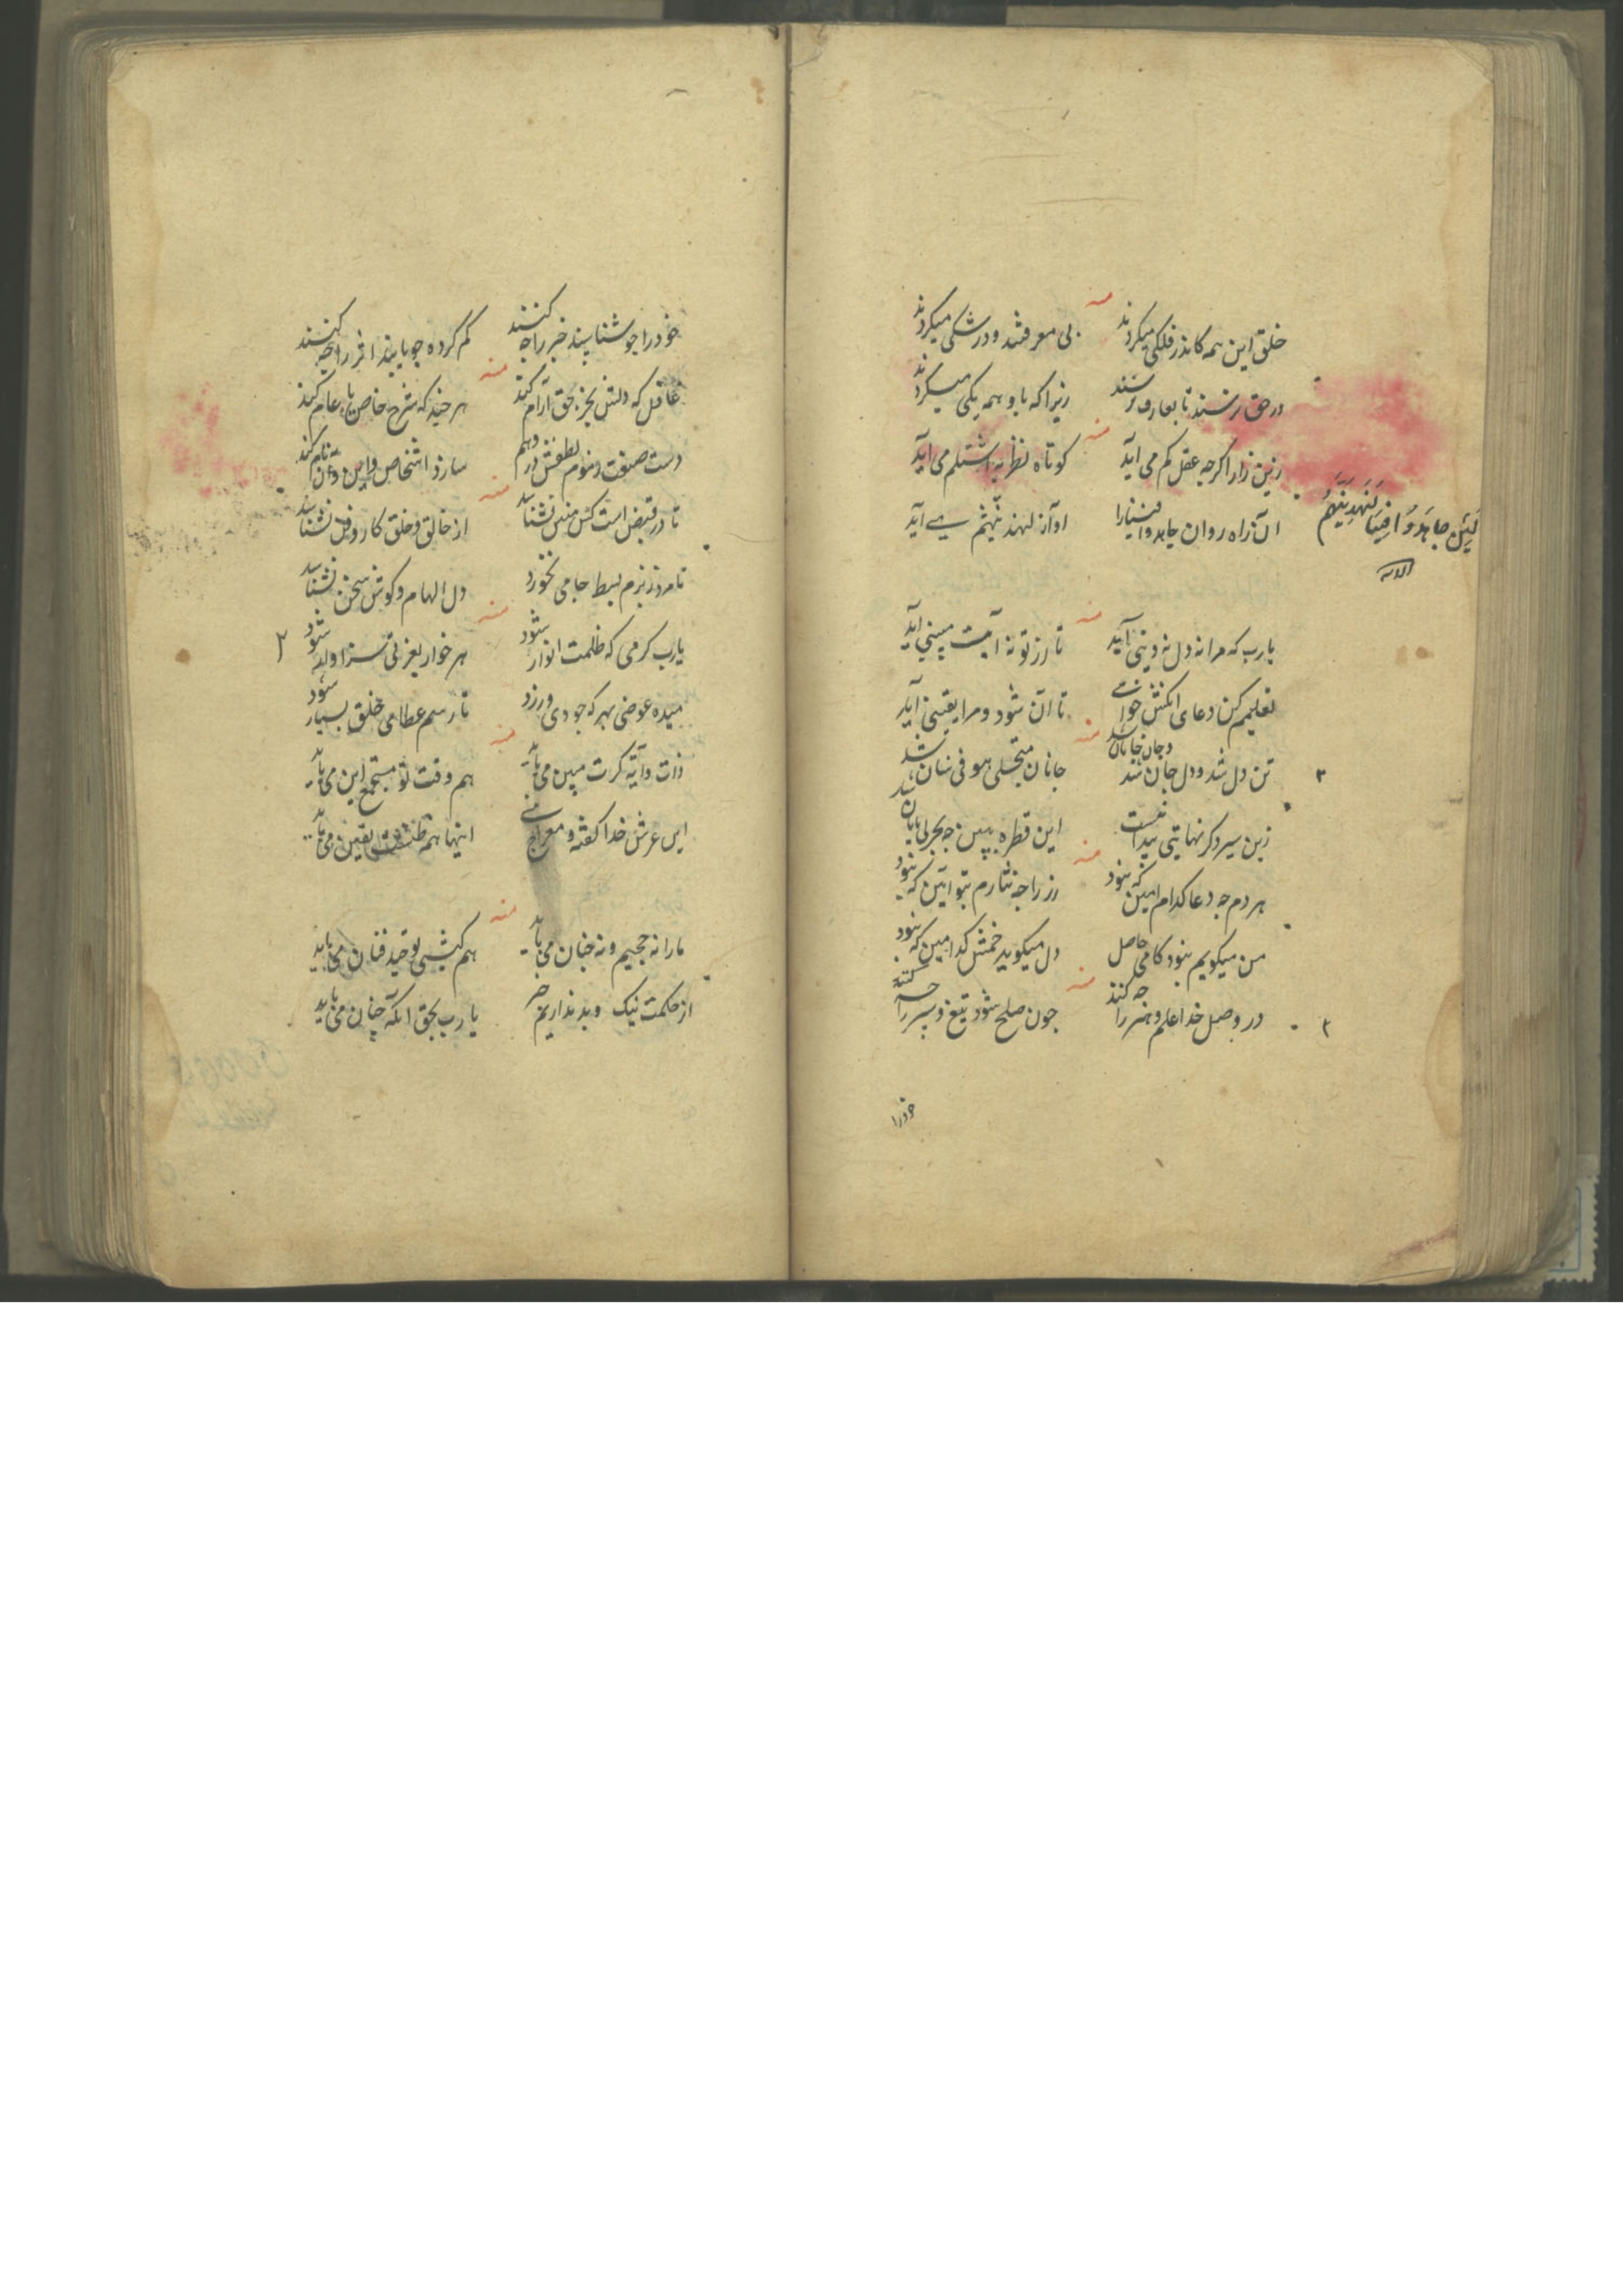 منه
خلق این همه کاندر فلکی میکردند بی معرفتند و در شکی میکردند
در حق نرسند تا بعارف نرسند زیرا که باو همه یکی میکردند
منه
زین زار اکرچه عقل کم می آید کوتاه نظر به اشتلم می آید
آن راه روان جاهدوا فینا را او آز لنهدینهم می آید
لئن جاهدوا فینا لنهدینهم
الایه
منه
یارب که مرا نه دل نه دینی آید تا از تو نه آیت مبینی آید
تعلیمم کن دعای آنکش خوانی تا آن شود و مرا یقینی آید
منه
تن دل شد و دل جان شد و جان جانان شد جانان متجلی هو فی شان شد
زین سیر دکر نهایتی پیدا نیست این قطره ببین چه بحر بی پایان شد
منه
هر دم چه دعا کدام آمین که نبود رز را چه نثارم بتو آیین که نبود
من میکویم نبود کامی حاصل دل میکوید خمش کدامین که نبود
منه
در وصل خدا علم و هنر را چه کند چون صلح شود تیغ و سپر را چه کند
خودرا
خود را چو شناسند خبر را چه کنند کم کرده چو یابند اثر را چه کنند
منه
غافل که دلش بجز بحق آرام کند هر چند که شرح خاص با عام کند
دست صنعت و موم لطفش در وهم سازد اشخاص و این و آن نام کند
منه
تا در قبض است کس منس نشناسد از خالق و خلق کار و فن نشناسد
تا مرد ز بزم بسط جامی نخورد دل الهام و کوش سخن نشناسد
منه
یارب کرمی که ظلمت انوار شود هر خوار بعزتی سزاوار شود
میده عوضی بهر که جودی ورزد تا رسم عطا می خلق بسیار شود
منه
ذات و آیه کرت مبین می باید هم وقت تو مجتمع این می باید
این عرش خدا کفته و معراج نبی اینها همه ظنست یقین می باید
منه
ما را نه جحیم و نه جنان می باید هم کیشی توحید فنان می باید
از حکمت نیک و بد نداریم خبر یارب بحق آنکه چنان می باید